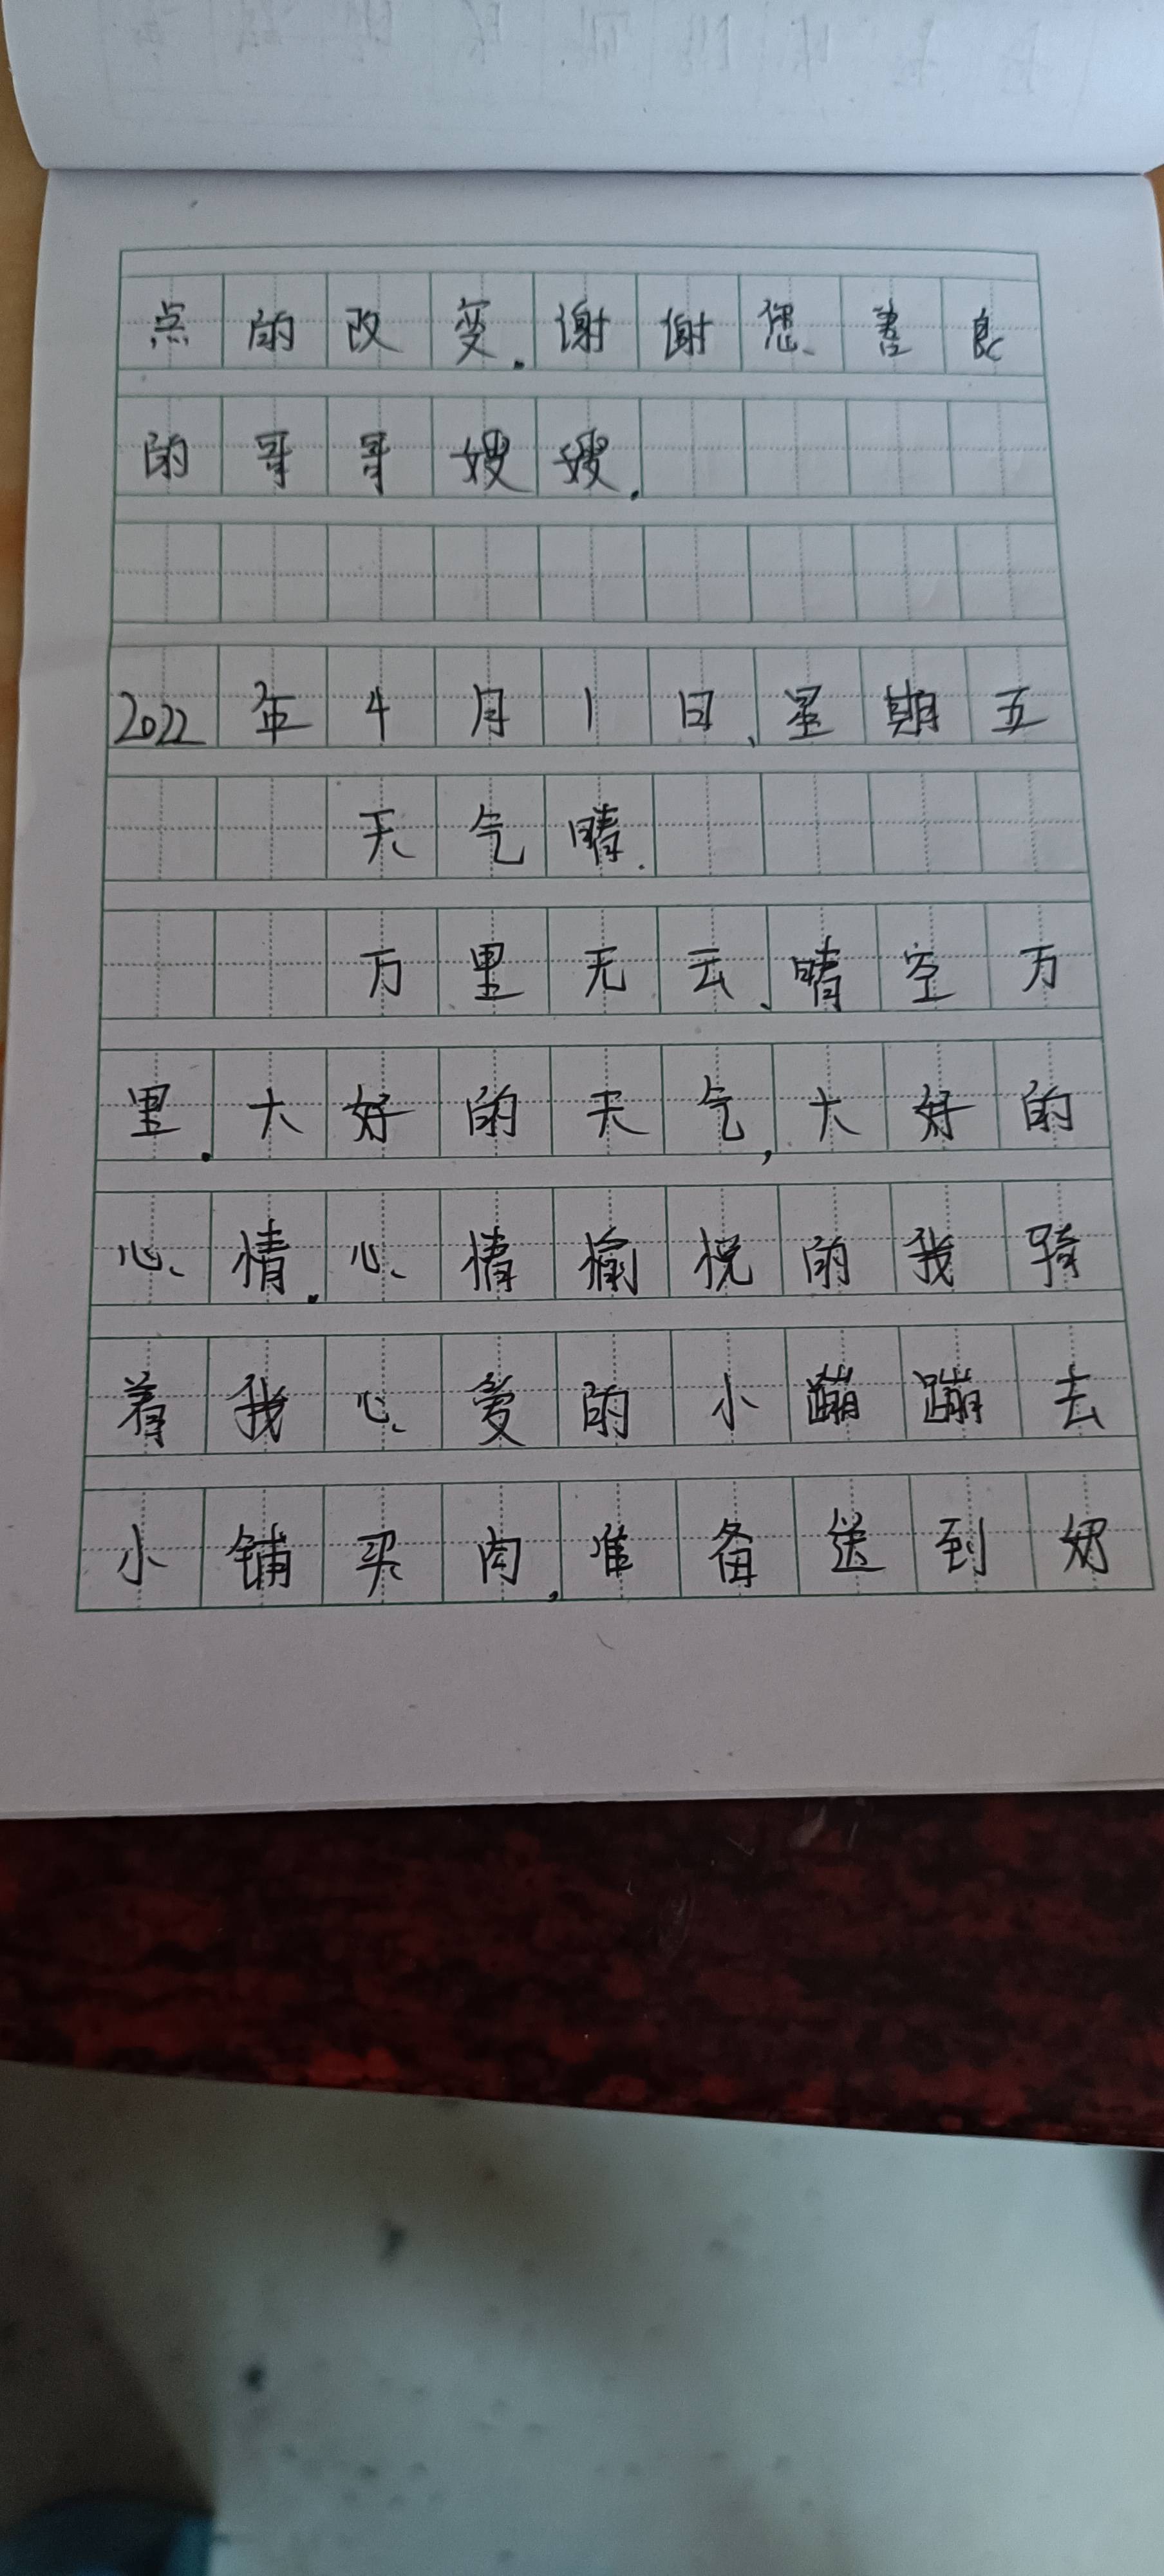 点的改变.谢谢您善良
的哥哥嫂嫂.
2022年4月1日、星期五
天气晴.
万里无云、晴空万
里.大好的天气,大好的
心情.心情愉悦的我骑
着我心爱的小蹦蹦去
小铺买肉,准备送到奶